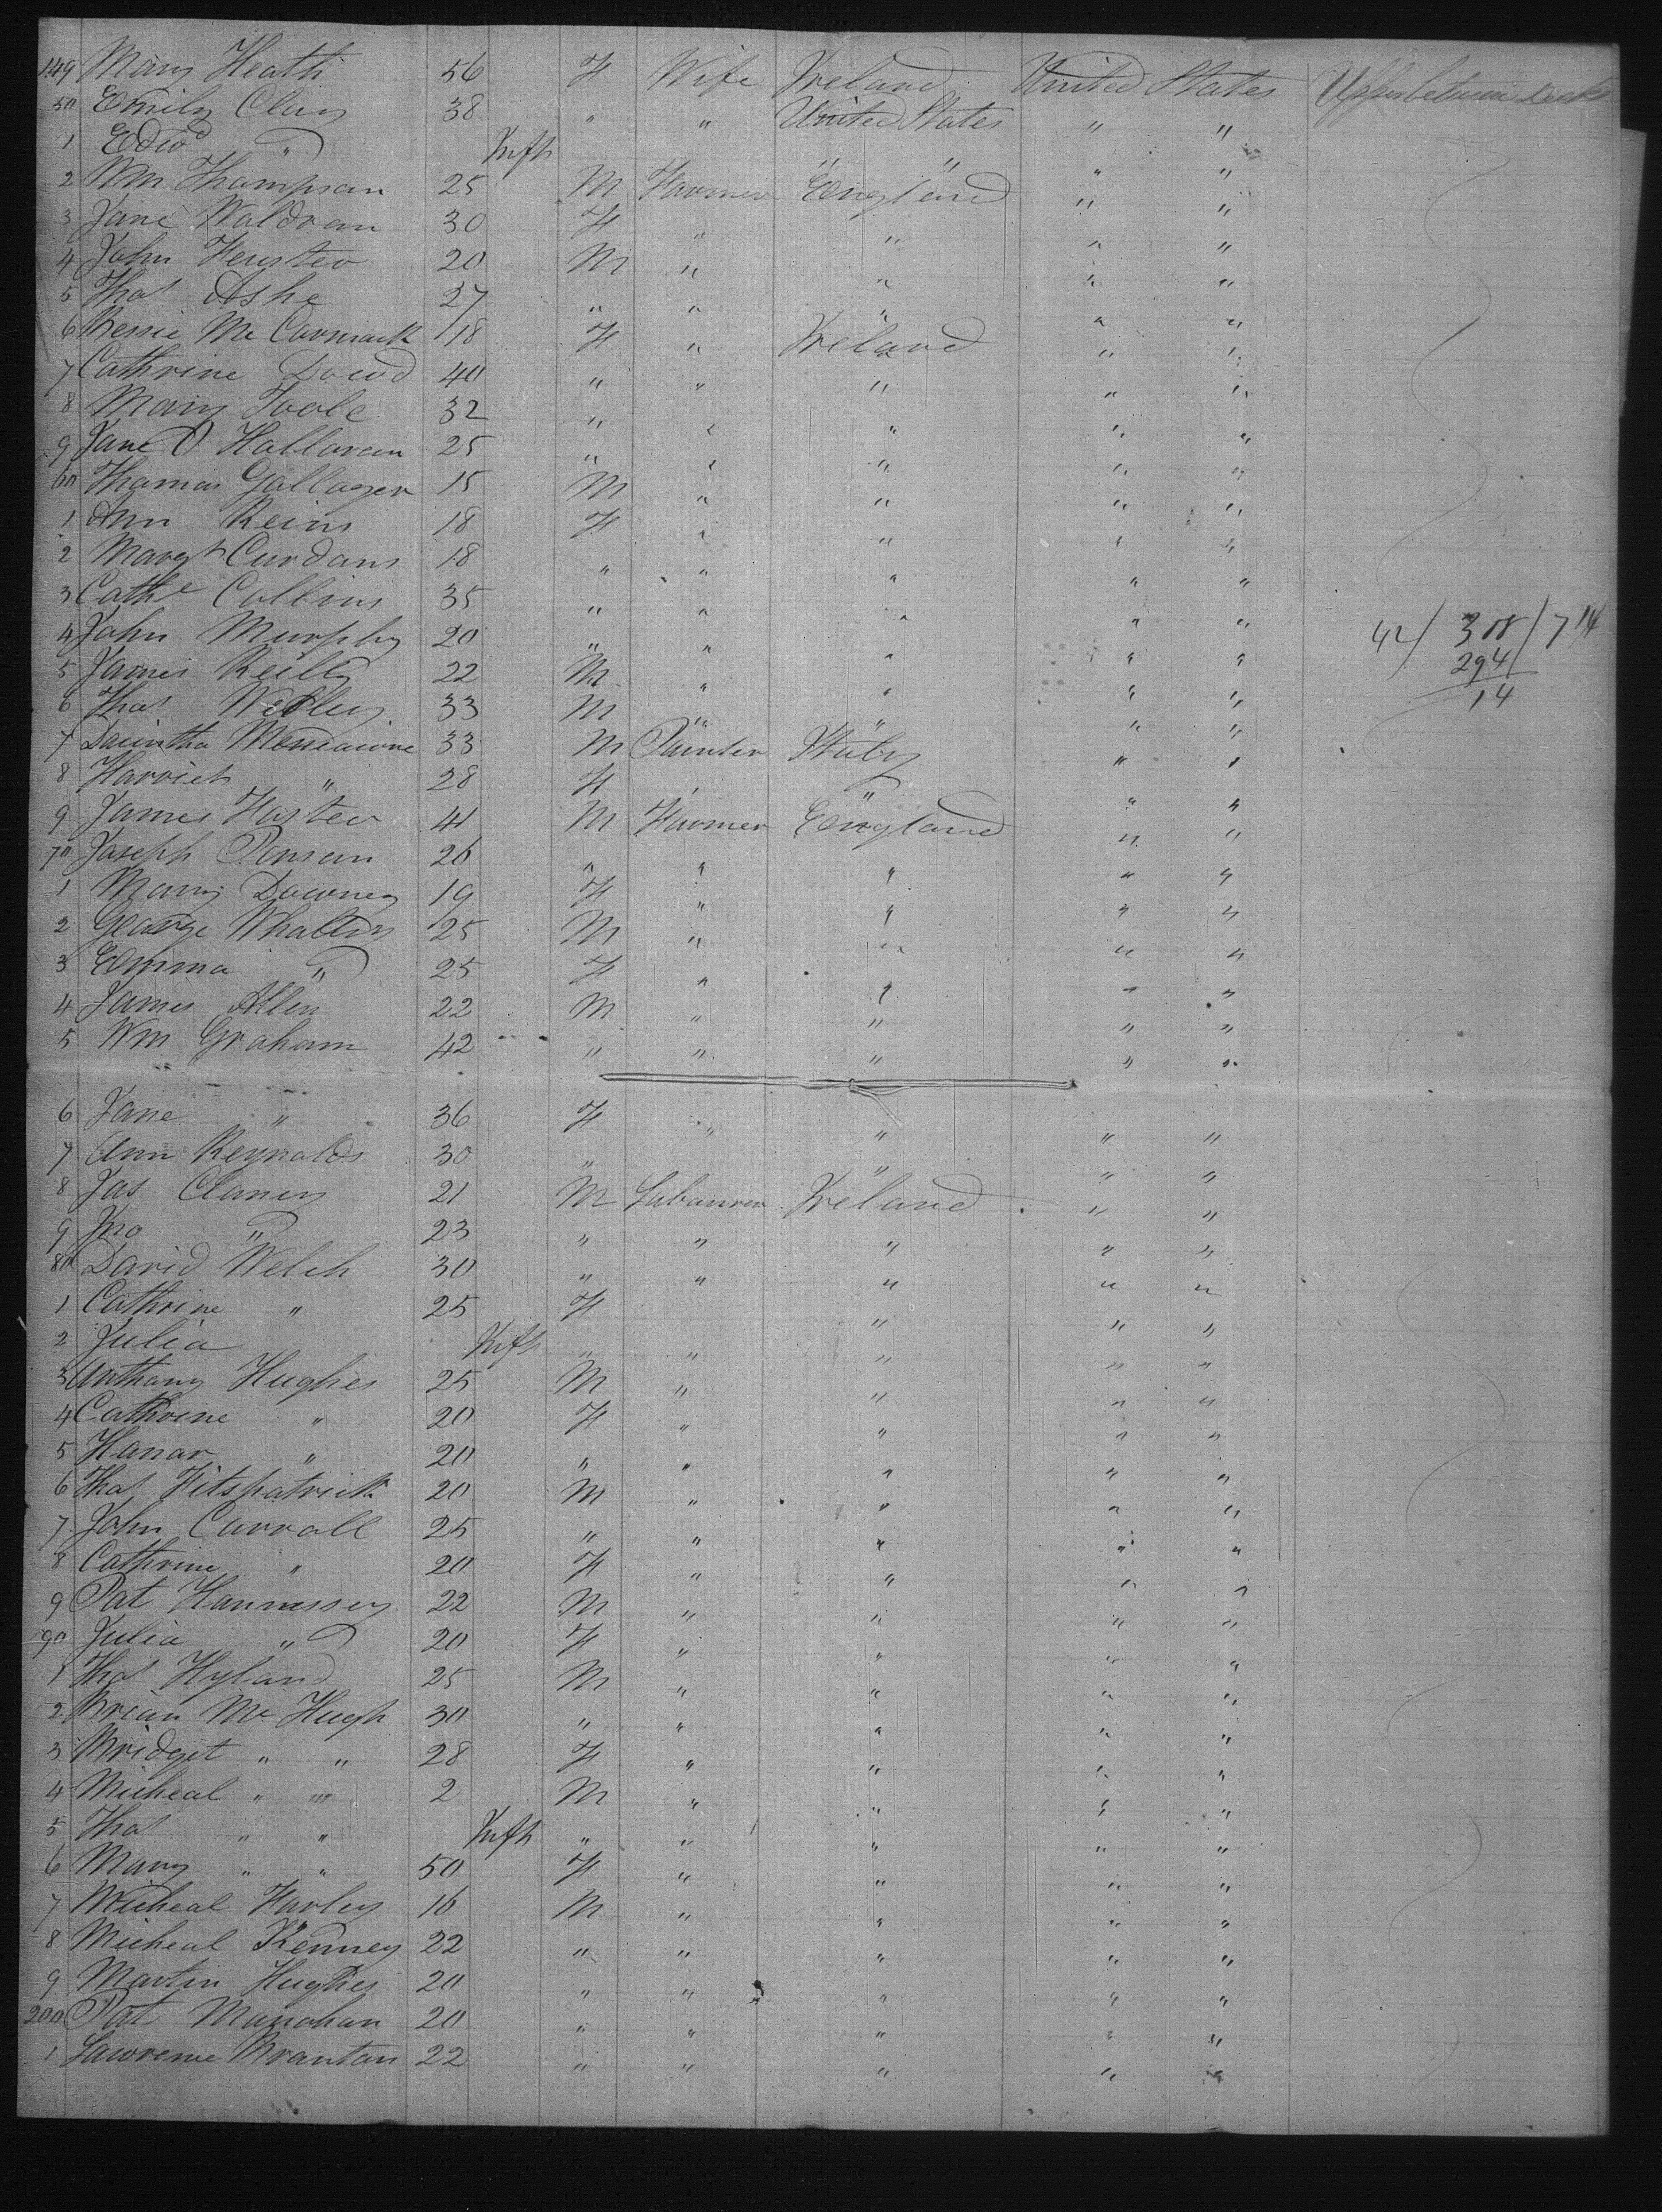 149 Mary Heath 56 F Wife Ireland United States Upper between Decks
50 Emily Clay 38 " " United States " "
1 Edwd " Inft " " " "
2 Wm Thompson 25 M Farmer England " "
3 Jane Waldron 30 F " " " "
4 John 20 M " " " "
5 Thos Ashe 27 " " " " "
6 Bessie Mc Cormack 18 F " Ireland " "
7 Cathrine Dowd 40 " " " " "
8 Mary Toole 32 " " " " "
9 Jane O Hallaran 25 " " " " "
60 Thomas Gallager 15 M " " " "
1 Ann Reins 18 F " " " "
2 Margt Curdans 18 " " " " "
3 Cathe Collins 35 " " " " "
4 John Murphy 20 " " " " "
42 / 308 / 7 14
5 James Reilly 22 M " " " "
294
6 Thos 33 M " " " "
14
7 33 M Painter Italy " "
8 Harriet " 28 F " " " "
9 James Foster 41 M Farmer England " "
70 Joseph Penson 26 " " " " "
1 Mary Downey 19 F " " " "
2 George 25 M " " " "
3 Emma " 25 F " " " "
4 James Allen 22 M " " " "
5 Wm Graham 42 " " " " "
6 Jane " 36 F " " " "
7 Ann Reynolds 30 " " " "
8 Jas Clancy 21 M Labourer Ireland " "
9 Jno " 23 " " " " "
80 David Welch 30 " " " " "
1 Cathrine " 25 F " " "
2 Julia Inft " " " " "
3 Anthony Hughes 25 M " " " "
4 Cathrine " 20 F " " " "
5 Hanar " 20 " " " " "
6 Thos Fitspatrick 20 M " " " "
7 John Carroll 25 " " " " "
8 Cathrine " 20 F " " " "
9 Pat Hannessey 22 M " " " "
90 Julia " 20 F " " " "
1 Thos Hyland 25 M " " " "
2 Brian Mc Hugh 30 " " " " "
3 Bridget " " 28 F " " " "
4 Micheal " " 2 M " " " "
5 Thos " " Inft " " " " "
6 Mary " " 50 F " " " "
7 Micheal Farley 16 M " " " "
8 Micheal Kenney 22 " " " " "
9 Martin Hughes 20 " " " " "
200 Pat Manahan 20 " " " " "
1 Lawrence Brantan 22 " " " " "